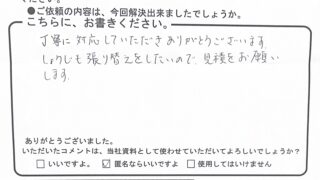 ださい。
●ご依頼の内容は、今回解決出来ましたでしょうか。
こちらに、お書きください。
丁寧に対応していただきありがとうございます
しょうじも張り替えをしたいので、見積をお願い
します。
ありがとうございました。
いただいたコメントは、当社資料として使わせていただいてよろしいでしょうか?
□ いいですよ。 ☑ 匿名ならいいですよ □ 使用してはいけません